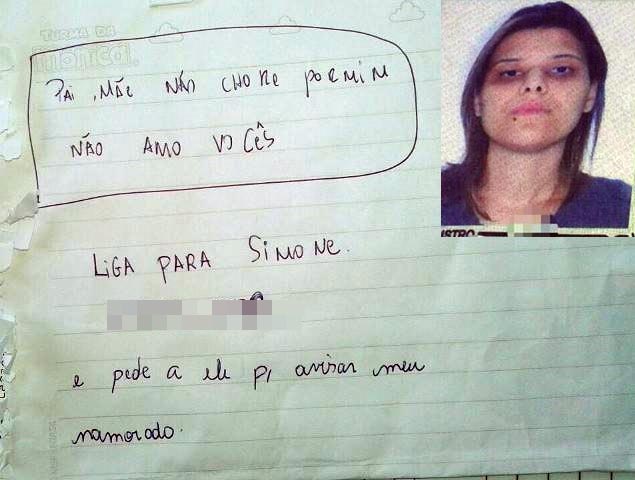 TURMA DA
MÔNICA.
PAI, MÃE NÃO CHORE PORMIM
NÃO AMO VOCÊS
LIGA PARA SIMONE.
e pede a ele p/ avisar meu
namorado.